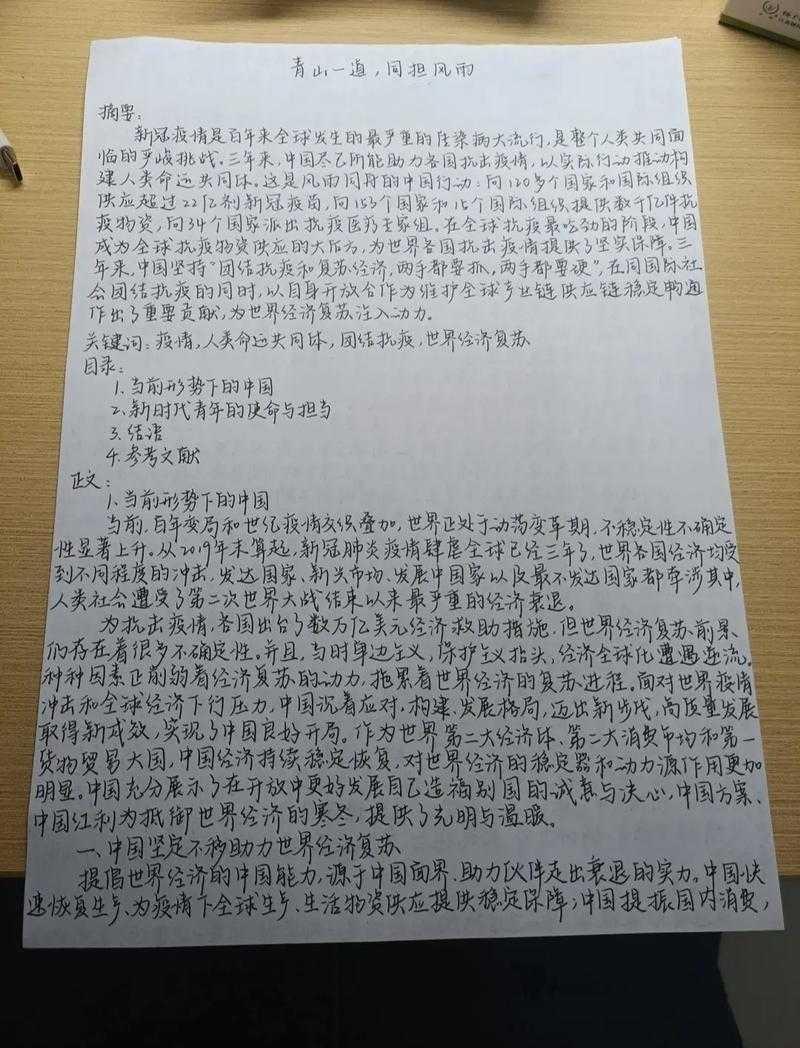 青山一道，同担风雨
摘要：
新冠疫情是百年来全球发生的最严重的传染病大流行，是整个人类共同面
临的严峻挑战。三年来，中国尽己所能助力各国抗击疫情，以实际行动推动构
建人类命运共同体。这是风雨同舟的中国行动：向120多个国家和国际组织
供应超过22亿剂新冠疫苗，向153个国家和15个国际组织提供数千亿件抗
疫物资，向34个国家派出抗疫医疗专家组。在全球抗疫最吃劲的阶段，中国
成为全球抗疫物资供应的大后方，为世界各国抗击疫情提供了坚实保障。三
年来，中国坚持“团结抗疫和复苏经济，两手都要抓，两手都要硬”，在同国际社
会团结抗疫的同时，以自身开放合作为维护全球产业链供应链稳定畅通
作出了重要贡献，为世界经济复苏注入动力。
关键词：疫情，人类命运共同体，团结抗疫，世界经济复苏
目录：
1.当前形势下的中国
2.新时代青年的使命与担当
3.结语
4.参考文献
正文：
1.当前形势下的中国
当前，百年变局和世纪疫情交织叠加，世界正处于动荡变革期，不稳定性不确定
性显著上升。从2019年末算起，新冠肺炎疫情肆虐全球已经三年了，世界各国经济均受
到不同程度的冲击，发达国家、新兴市场、发展中国家以及最不发达国家都牵涉其中，
人类社会遭受了第二次世界大战结束以来最严重的经济衰退。
为抗击疫情，各国出台了数万亿美元经济救助措施，但世界经济复苏前景
仍存在着很多不确定性。并且，当时单边主义，保护主义抬头，经济全球化遭遇逆流。
种种因素正削弱着经济复苏的动力，拖累着世界经济的复苏进程。面对世界疫情
冲击和全球经济下行压力，中国沉着应对，构建、发展格局，迈出新步伐，高质量发展
取得新成效，实现了中国良好开局。作为世界第二大经济体、第二大消费市均和第一
货物贸易大国，中国经济持续稳定恢复，对世界经济的稳定器和动力源作用更加
明显。中国充分展示了在开放中更好发展自己造福别国的诚意与决心，中国方案、
中国红利为抵御世界经济的寒冬，提供了光明与温暖。
一、中国坚定不移助力世界经济复苏
提倡世界经济的中国能力，源于中国向界、助力伙伴走出衰退的实力。中国快
速恢复生产、为疫情下全球生产、生活物资供应提供稳定保障；中国提振国内消费，